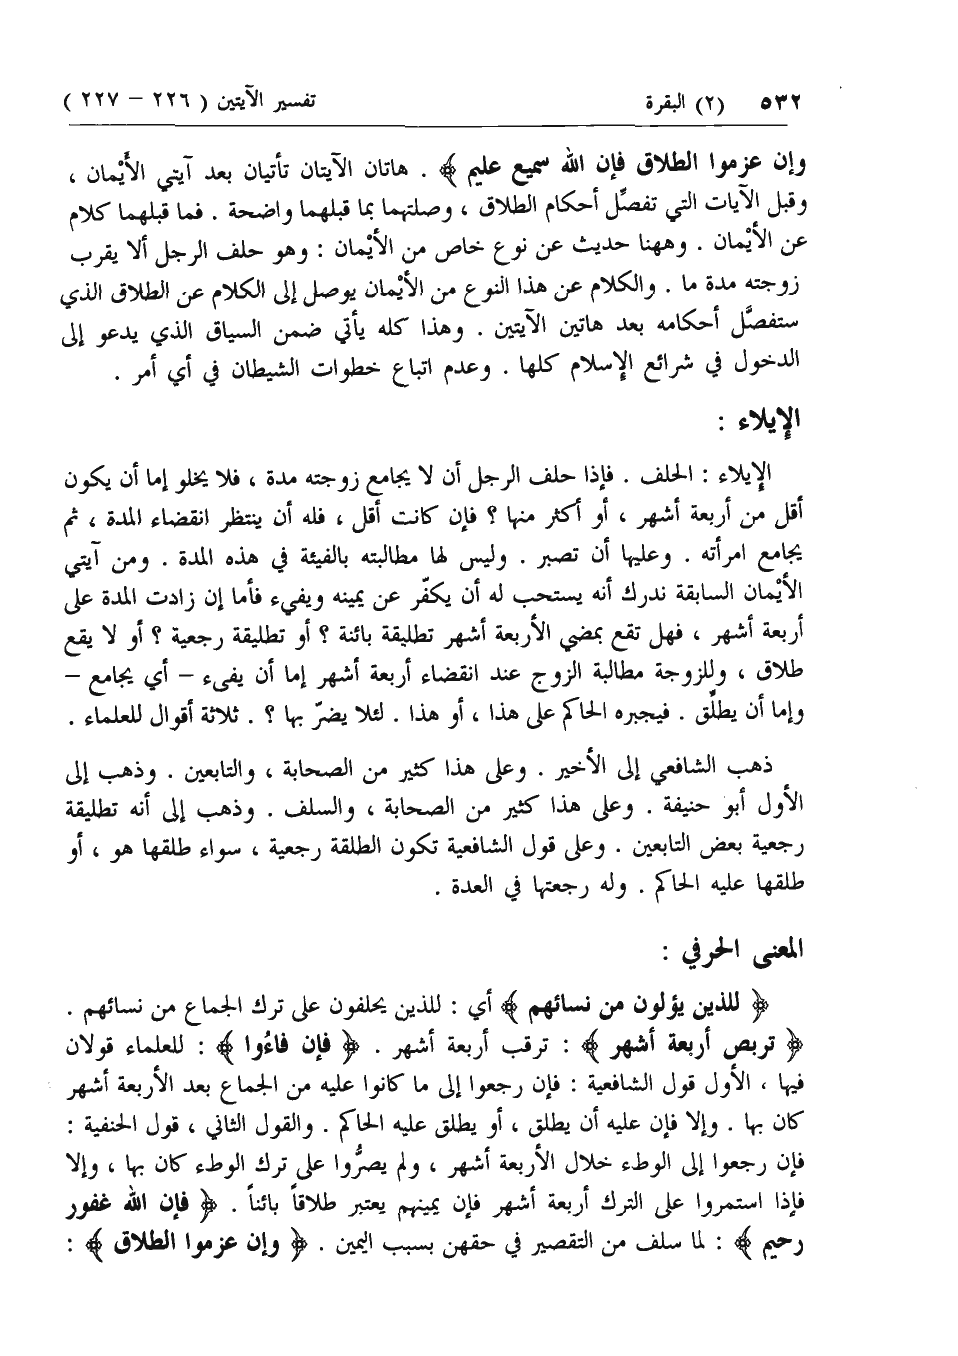 ٥٣٢ (٢) البقرة تفسير الآيتين ( ٢٢٦ – ٢٢٧ )
وإن عزموا الطلاق فإن الله سميع عليم ﴾ . هاتان الآيتان تأتيان بعد آيتي الأَيْمان ،
وقبل الآيات التي تفصِّل أحكام الطلاق ، وصلتهما بما قبلهما واضحة . فما قبلهما كلام
عن الأيْمان . وههنا حديث عن نوع خاص من الأيْمان : وهو حلف الرجل ألا يقرب
زوجته مدة ما . والكلام عن هذا النوع من الأيْمان يوصل إلى الكلام عن الطلاق الذي
ستفصَّل أحكامه بعد هاتين الآيتين . وهذا كله يأتي ضمن السياق الذي يدعو إلى
الدخول في شرائع الإسلام كلها . وعدم اتباع خطوات الشيطان في أي أمر .
الإيلاء :
الإيلاء : الحلف . فإذا حلف الرجل أن لا يجامع زوجته مدة ، فلا يخلو إما أن يكون
أقل من أربعة أشهر ، أو أكثر منها ؟ فإن كانت أقل ، فله أن ينتظر انقضاء المدة ، ثم
يجامع امرأته . وعليها أن تصبر . وليس لها مطالبته بالفيئة في هذه المدة . ومن آيتي
الأيْمان السابقة ندرك أنه يستحب له أن يكفّر عن يمينه ويفيء فأما إن زادت المدة على
أربعة أشهر ، فهل تقع بمضي الأربعة أشهر تطليقة بائنة ؟ أو تطليقة رجعية ؟ أو لا يقع
طلاق ، وللزوجة مطالبة الزوج عند انقضاء أربعة أشهر إما أن يفىء – أي يجامع –
وإما أن يطلِّق . فيجبره الحاكم على هذا ، أو هذا . لئلا يضرّ بها ؟ . ثلاثة أقوال للعلماء .
ذهب الشافعي إلى الأخير . وعلى هذا كثير من الصحابة ، والتابعين . وذهب إلى
الأول أبو حنيفة . وعلى هذا كثير من الصحابة ، والسلف . وذهب إلى أنه تطليقة
رجعية بعض التابعين . وعلى قول الشافعية تكون الطلقة رجعية ، سواء طلقها هو ، أو
طلقها عليه الحاكم . وله رجعتها في العدة .
المعنى الحرفي :
﴿ للذين يؤلون من نسائهم ﴾ أي : للذين يحلفون على ترك الجماع من نسائهم .
﴿ تربص أربعة أشهر ﴾ : ترقب أربعة أشهر . ﴿ فإن فاءُوا ﴾ : للعلماء قولان
فيها ، الأول قول الشافعية : فإن رجعوا إلى ما كانوا عليه من الجماع بعد الأربعة أشهر
كان بها . وإلا فإن عليه أن يطلق ، أو يطلق عليه الحاكم . والقول الثاني ، قول الحنفية :
فإن رجعوا إلى الوطء خلال الأربعة أشهر ، ولم يصرُّوا على ترك الوطء كان بها ، وإلا
فإذا استمروا على الترك أربعة أشهر فإن يمينهم يعتبر طلاقاً بائناً . ﴿ فإن الله غفور
رحيم ﴾ : لما سلف من التقصير في حقهن بسبب اليمين . ﴿ وإن عزموا الطلاق ﴾ :